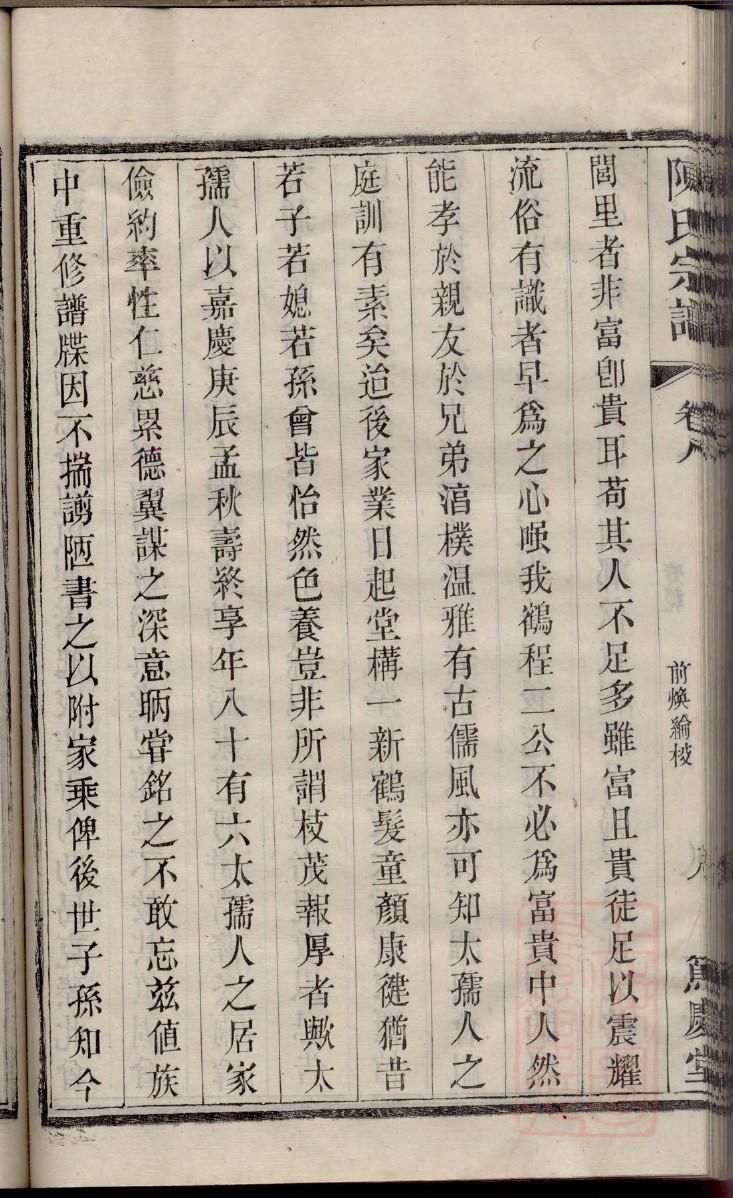 陳氏宗譜
卷八
前煥綸枝
八
篤慶堂
閭里者非富卽貴耳苟其人不足多雖富且貴徒足以震耀
流俗有識者早爲之心嗤我鶴程二公不必爲富貴中人然
能孝於親友於兄弟湻樸温雅有古儒風亦可知太孺人之
庭訓有素矣迨後家業日起堂構一新鶴髮童顏康健猶昔
若子若媳若孫曾皆怡然色養豈非所謂枝茂報厚者歟太
孺人以嘉慶庚辰孟秋壽終享年八十有六太孺人之居家
儉約率性仁慈累德翼謀之深意昞嘗銘之不敢忘兹值族
中重修譜牒因不揣譾陋書之以附家乘俾後世子孫知今